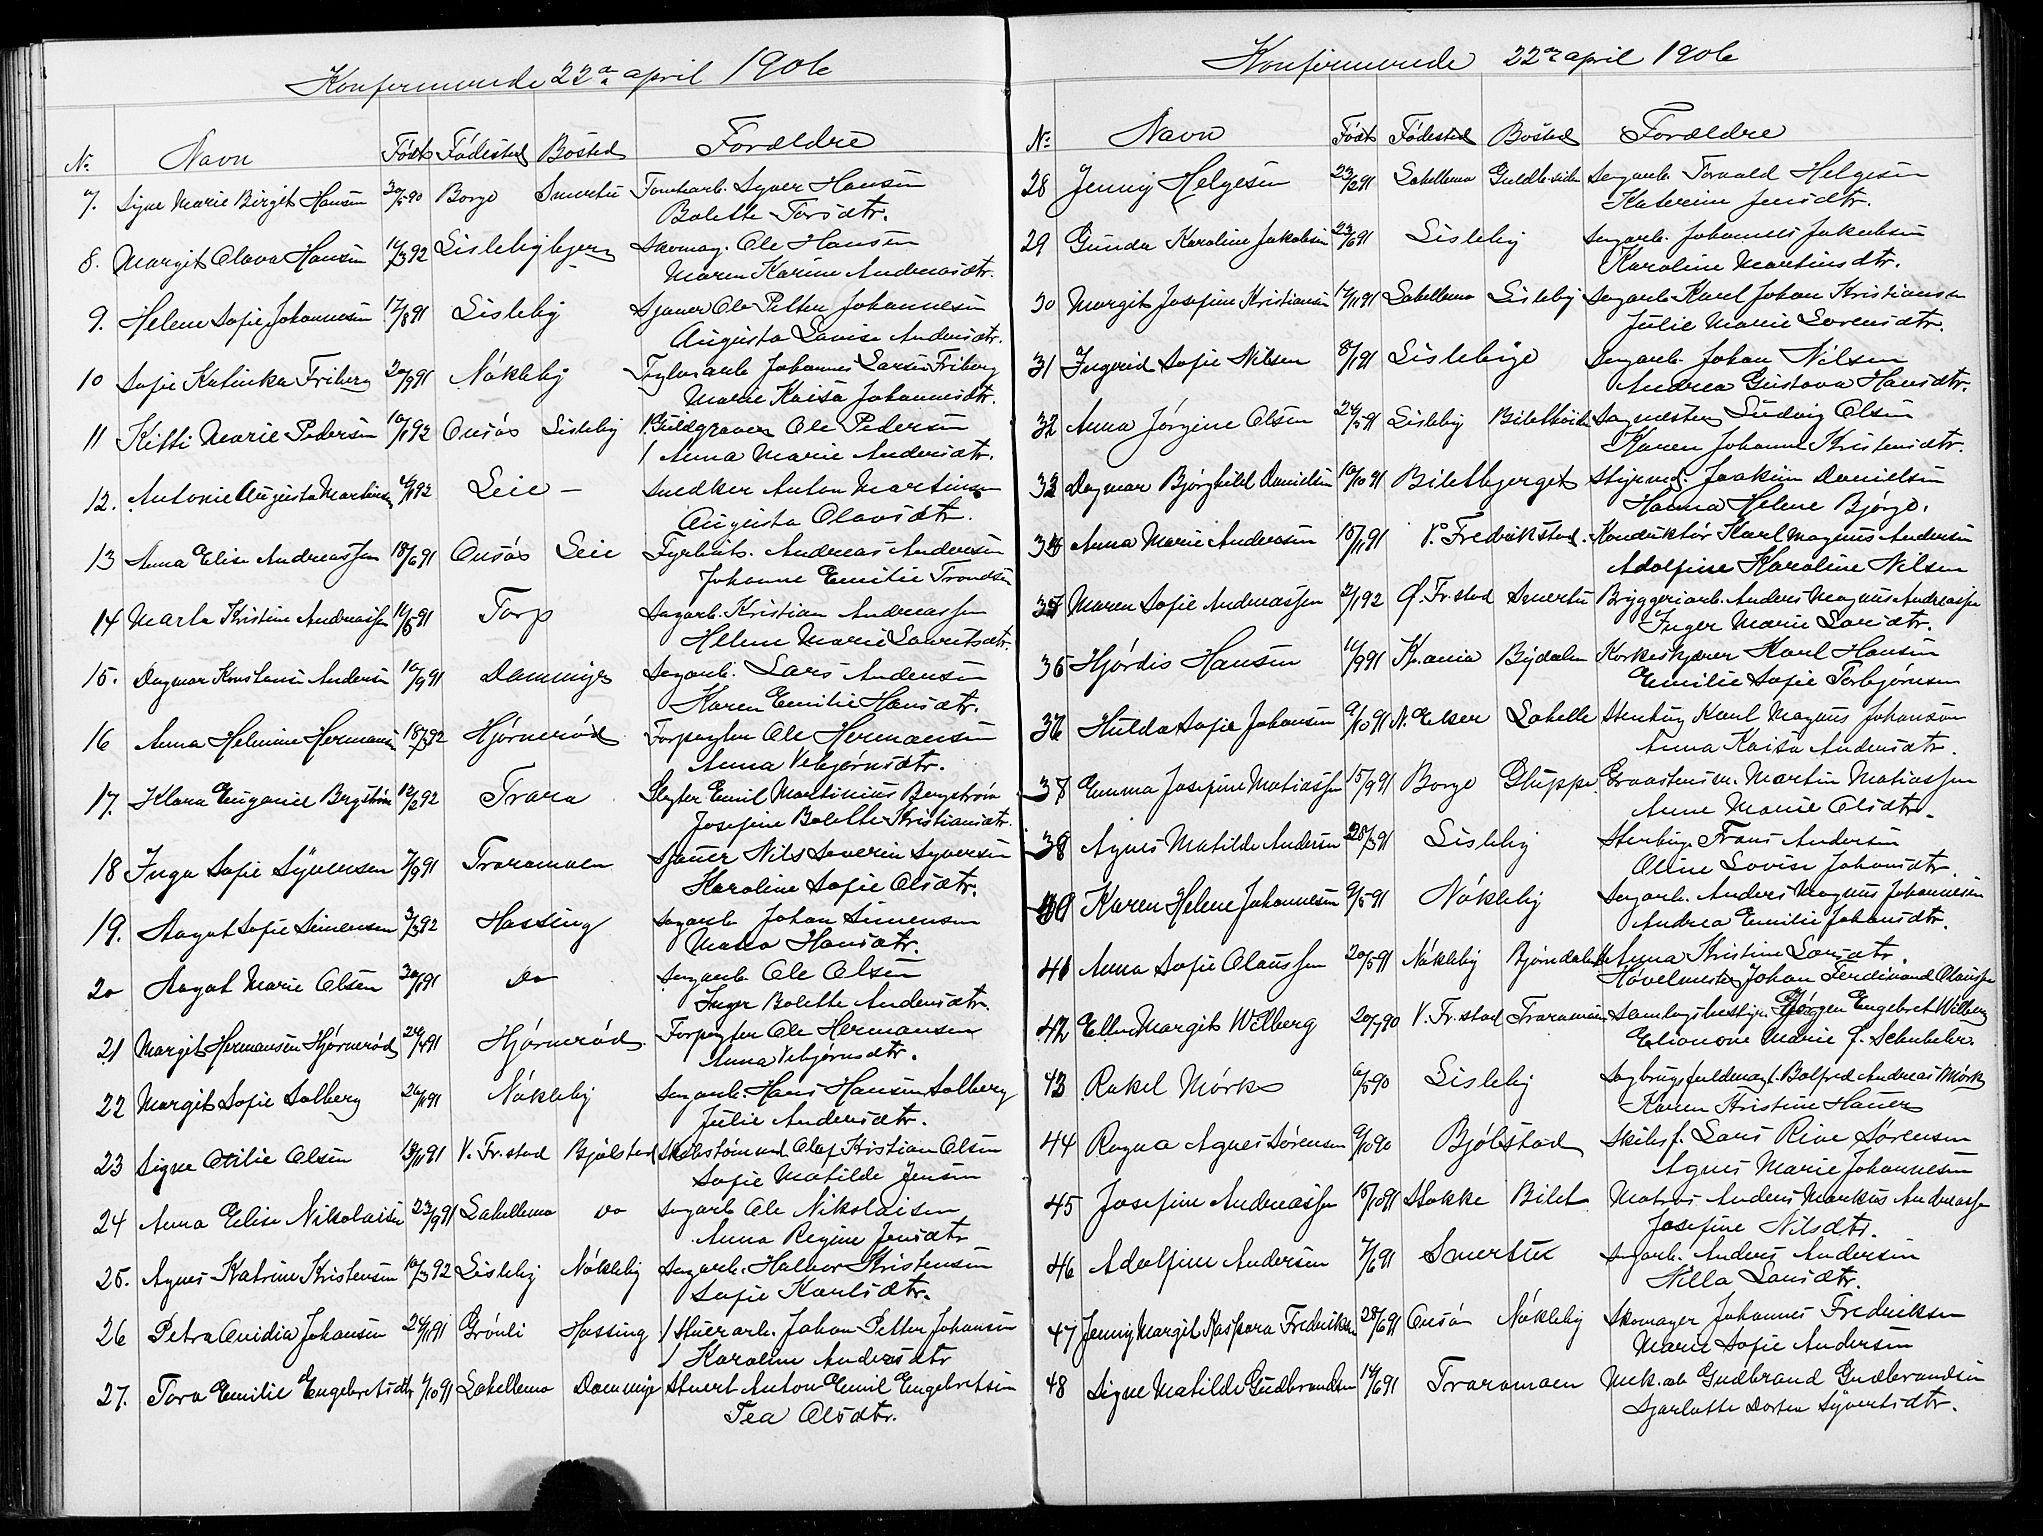 Konfirmerede 22de april 1906
No Navn Født Fødested Bosted Forældre
7. Signe Marie Birgit Hansen 30/5 90 Borge Smertu Tomtearb. Syver Hansen
Bolette Torsdtr.
8. Margit Olava Hansen /3 92 Lislebybjerg Skomag. Ole Hansen
Maren Karine Andreasdtr.
9. Helene Sofie Johannesen 17/8 91 Lisleby Sjauer Ole Petter Johannesen
Augusta Lovise Andersdtr.
10 Sofie Katinka Friberg 20/9 91 Nøkleby Teglv.arb Johannes Larsen Friberg
Marie Kaisa Johannesdtr.
11 Kitti Marie Pedersen 10/1 92 Onsøs Lisleby Guldgraver Ole Pedersen
Anna Marie Andersdtr.
12. Antonie Augusta Martinsen /1 92 Leie – Snedker Anton Martinsen
Augusta Olavsdtr.
13 Anna Elise Andreassen 18/6 91 Onsøs Leie Fyrbøt. Andreas Andersen
Johanne Emilie Trondsen
14 Marta Kristine Andreassen 11/5 91 Torp Sagarb. Kristian Andreassen
Helene Marie Lauritsdtr.
15. Dagmar Konstanse Andersen 10/9 91 Dammyr Sagarb. Lars Andersen
Karen Emilie Hansdtr.
16 Anna Helmine Hermansen 18/3 92 Hjørnerød Forpagter Ole Hermansen
Anna Vebjørnsdtr.
17. Klara Eugenie Bergstrøm 12/2 92 Trara Slagter Emil Martinius Bergstrøm
Josefine Bolette Kristiansdtr.
18 Inga Sofie Syversen 7/9 91 Traramoen Sjauer Nils Severin Syversen
Karoline Sofie Olsdtr.
19. Aagot Sofie Simensen 3/3 92 Hassing Sagarb Johan Simensen
Maria Hansdtr.
20 Aagot Marie Olsen 30/ 91 do Sagarb Ole Olsen
Inger Bolette Andersdtr.
21 Margit Hermansen Hjørnerød 24/4 91 Hjørnerød Forpagter Ole Hermansen
Anna Vebjørnsdtr.
22 Margit Sofie Solberg 26/11 91 Nøkleby Sagarb. Hans Hansen Solberg
Julie Andersdtr.
23 Signe Otilie Olsen 13/11 91 V. Fr.stad Bjølstad Skibstømmerm. Olaf Kristian Olsen
Sofie Matilde Jensen
24 Anna Elise Nikolaisen 23/9 91 Labellemo do Sagarb Ole Nikolaisen
Anna Regine Jensdtr
25. Agnes Katrine Kristensen 10/3 92 Lisleby Nøkleby Sagarb. Halvor Kristensen
Sofie Karlsdtr.
26 Petra Ovidia Johansen 24/11 91 Grønli Hassing Stuerarb. Johan Petter Johansen
Karoline Andersdtr
27. Tora Emilie Engebretsdtr 4/10 91 Labellemo Dammyr Stuert Anton Emil Engebretsen
Tea Olsdtr.
Konfirmerede 22de april 1906
No Navn Født Fødested Bosted Forældre
28 Jenny Helgesen 23/12 91 Labellemo Guldb.siden Sagarb. Torvald Helgesen
Katerine Jensdtr.
29 Gunda Karoline Jakobsen 23/6 91 Lisleby Sagarb. Johannes Jakobsen
Karoline Martinsdtr.
30 Margit Josefine Kristiansen 17/11 91 Labellemo Lisleby Sagarb Karl Johan Kristiansen
Julie Marie Sorensdtr.
31 Ingerid Sofie Nilsen 8/1 91 Lislebyje Sagarb. Johan Nilsen
Andrea Gustava Hansdtr.
32 Anna Jørgine Olsen 24/5 91 Lisleby Biletkoien Sagmester Ludvig Olsen
Karen Johanne Kristensdtr.
33 Dagmar Bjørghild Danielsen 10/10 91 Biletbjerget Styrmd. Joakim Danielsen
Hanna Helene Bjørge.
34 Anna Marie Andersen 15/11 91 V. Fredrikstad. Konduktør Karl Magnus Andersen
Adolfine Karoline Nilsen
35 Maren Sofie Andreassen 2/1 92 Ø. Fr.stad Smertu Bryggeriarb. Anders Magnus Andreassen
Inger Marie Larsdtr.
36 Hjørdis Hansen 11/9 91 Kr.ania Bydalen Korkeskjærer Karl Hansen
Emilie Sofie Torbjørnsen
37 Hulda Sofie Johansen 9/10 91 N. Eker Labelle Stenhug Karl Magnus Johansen
Anna Kaisa Andersdtr.
38 Emma Josefine Matiassen 15/9 91 Borge Gluppe Graastensm. Martin Matiassen
Anne Marie Olsdtr.
39 Agnes Matilde Andersen 28/3 91 Lisleby Stenhug. Frans Andersen
Oline Lovise Johansdtr.
40 Karen Helene Johannesen 9/5 91 Nøkleby Sagarb. Anders Magnus Johannesen
Andrea Emilie Johansdtr.
41 Anna Sofie Olaussen 20/5 91 Nøkleby Bjørndalen Anna Kristine Larsdtr.
Høvelmester Johan Ferdinand Olaussen
42 Ellen Margit Wilberg 20/7 90 V. Fr.stad Traramoen Samlagsbestyr. Jørgen Engebret Wilberg
Elionore Marie f. Schubeler.
43 Rakel Mørk 6/5 90 Lisleby Sagbrugsfuldmægt. Bolfred Andreas Mørk
Karen Kristine Hauer
44 Ragna Agnes Sørensen 9/10 90 Bjølstad Skibsf. Lars Rive Sørensen
Agnes Marie Johannesen
45 Josefine Andreassen 15/10 91 Stokke Bilet Matros Anders Markus Andreassen
Josefine Nilsdtr.
46 Adolfine Andersen 7/6 91 Smertu Sagarb. Anders Andersen
Nilla Larsdtr.
47 Jenny Margit Kaspara Fredriksen 28/6 91 Onsø Nøkleby Skomager Johannes Fredriksen
Marie Sofie Andersen
48 Signe Matilde Gudbrandsen 14/6 91 Traramoen Mek.arb Gudbrand Gudbrandsen
Sjarlotte Dortea Syvertsdtr.